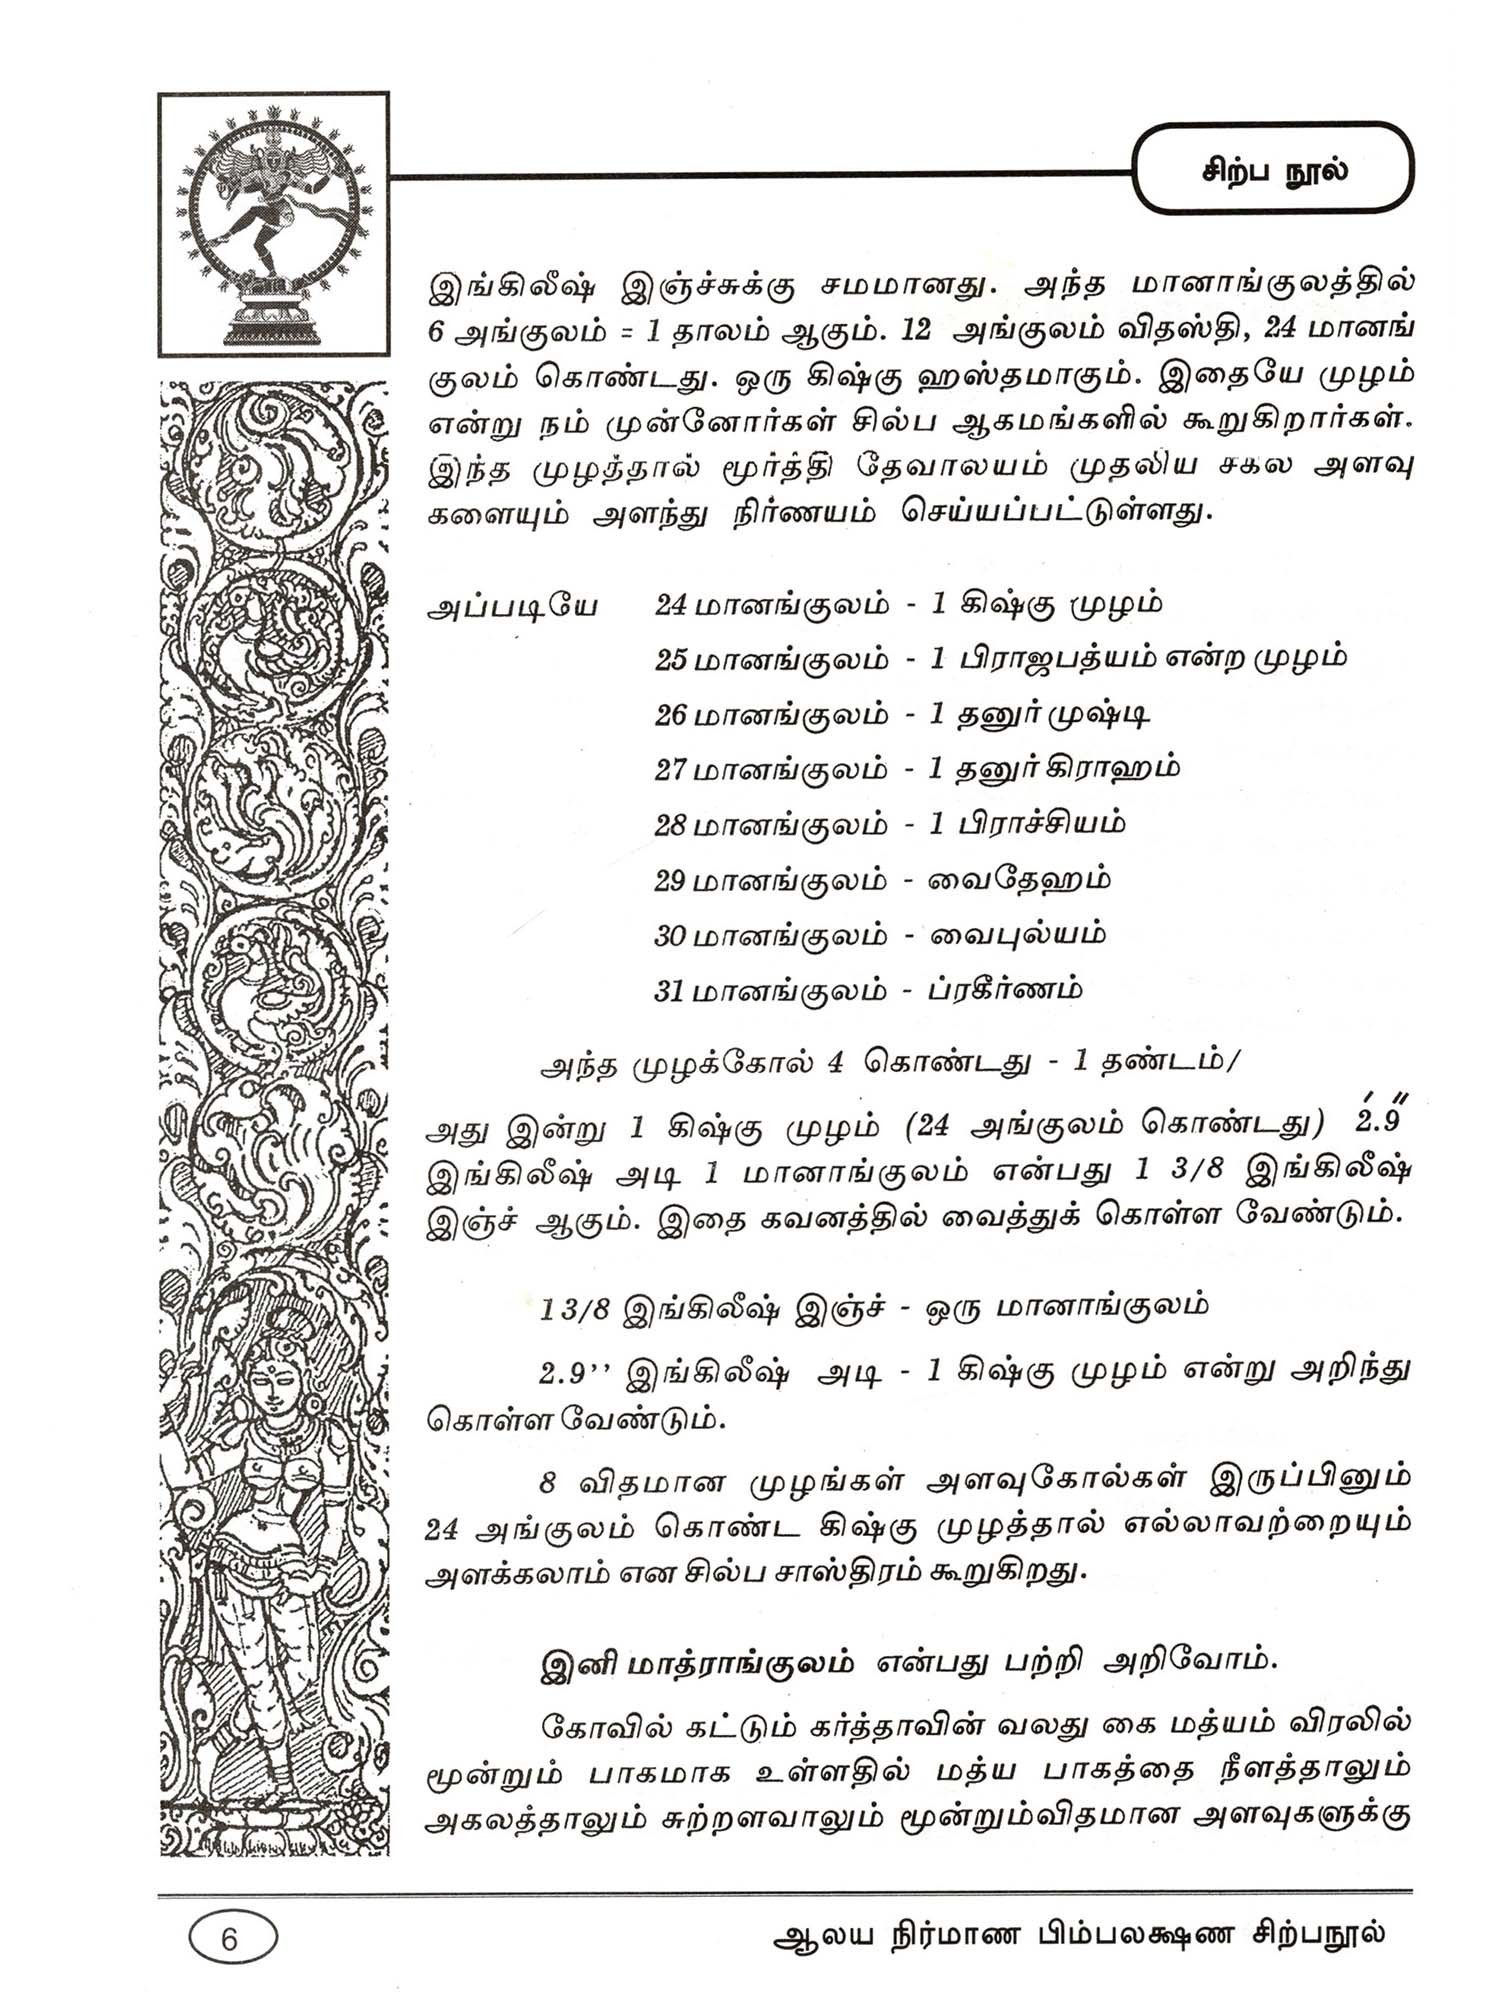 சிற்ப நூல்
இங்கிலீஷ் இஞ்ச்சுக்கு சமமானது. அந்த மானாங்குலத்தில்
6 அங்குலம் = 1 தாலம் ஆகும். 12 அங்குலம் விதஸ்தி, 24 மானங்
குலம் கொண்டது. ஒரு கிஷ்கு ஹஸ்தமாகும். இதையே முழம்
என்று நம் முன்னோர்கள் சில்ப ஆகமங்களில் கூறுகிறார்கள்.
இந்த முழத்தால் மூர்த்தி தேவாலயம் முதலிய சகல அளவு
களையும் அளந்து நிர்ணயம் செய்யப்பட்டுள்ளது.
அப்படியே 24 மானங்குலம் - 1 கிஷ்கு முழம்
25 மானங்குலம் - 1 பிராஜபத்யம் என்ற முழம்
26 மானங்குலம் - 1 தனுர் முஷ்டி
27 மானங்குலம் - 1 தனுர் கிராஹம்
28 மானங்குலம் - 1 பிராச்சியம்
29 மானங்குலம் - வைதேஹம்
30 மானங்குலம் - வைபுல்யம்
31 மானங்குலம் - ப்ரகீர்ணம்
அந்த முழக்கோல் 4 கொண்டது - 1 தண்டம்/
அது இன்று 1 கிஷ்கு முழம் (24 அங்குலம் கொண்டது) 2'.9"
இங்கிலீஷ் அடி 1 மானாங்குலம் என்பது 1 3/8 இங்கிலீஷ்
இஞ்ச் ஆகும். இதை கவனத்தில் வைத்துக் கொள்ள வேண்டும்.
1 3/8 இங்கிலீஷ் இஞ்ச் - ஒரு மானாங்குலம்
2.9’’ இங்கிலீஷ் அடி - 1 கிஷ்கு முழம் என்று அறிந்து
கொள்ள வேண்டும்.
8 விதமான முழங்கள் அளவுகோல்கள் இருப்பினும்
24 அங்குலம் கொண்ட கிஷ்கு முழத்தால் எல்லாவற்றையும்
அளக்கலாம் என சில்ப சாஸ்திரம் கூறுகிறது.
இனி மாத்ராங்குலம் என்பது பற்றி அறிவோம்.
கோவில் கட்டும் கர்த்தாவின் வலது கை மத்யம் விரலில்
மூன்றும் பாகமாக உள்ளதில் மத்ய பாகத்தை நீளத்தாலும்
அகலத்தாலும் சுற்றளவாலும் மூன்றும்விதமான அளவுகளுக்கு
6
ஆலய நிர்மாண பிம்பலக்ஷண சிற்பநூல்